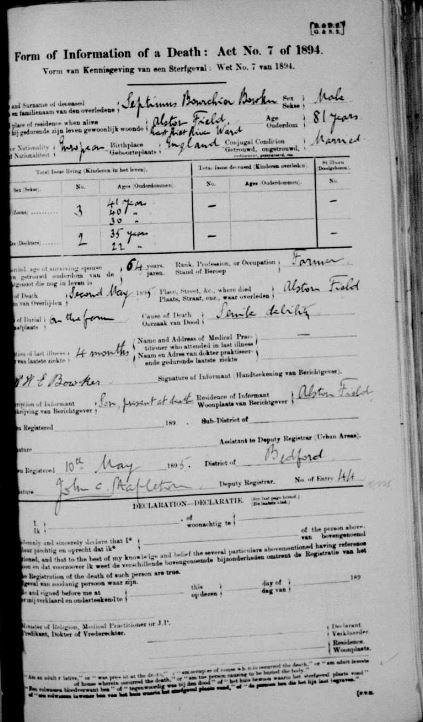 [B. & D. 2]
[G. & S. 2.]
Form of Information of a Death: Act No. 7 of 1894.
Vorm van Kennisgeving van een Sterfgeval: Wet No. 7 van 1894.
and Surname of deceased
en familienaam van den overledene
Septimus Bourchier Bowker
Sex
Sekse
Male
place of residence when alive
bij gedurende zijn leven gewoonlijk woonde
Alston Field,
East Riet River Ward
Age
Ouderdom
81 years
or Nationality
of Nationaliteit
European
Birthplace
Geboorteplaats
England
Conjugal Condition
Getrouwd, ongetrouwd,
Married
Total Issue living (Kinderen in het leven).
Total issue deceased (Kinderen overleden).
Still born
Sex (Sekse).
No.
Ages (Ouderdommen).
No.
Ages (Ouderdommen).
No.
3
41 years
40 "
30 "
—
—
—
(Dochters)
2
35 years
22 "
—
—
—
age of surviving spouse
ouderdom van de
nog in leven is
64 years.
jaren.
Rank, Profession, or Occupation
Stand of Beroep
Farmer
of Death
van Overlijden
Second May 1895
Place, Street, &c., where died
Plaats, Straat, enz., waar overleden
Alston Field
of Burial
On the farm
Cause of Death
Oorzaak van Dood
Senile debility
of last illness
van laatste ziekte
4 months
Name and Address of Medical Prac-
titioner who attended in last illness
Naam en Adres van dokter praktiseer-
ende gedurende laatste ziekte
—
Bowker
Signature of Informant (Handteekening van Berichtgever).
of Informant
van Berichtgever
Son, present at death
Residence of Informant
Woonplaats van Berichtgever
Alston Field
Registered
189 .
Sub-District of
Assistant to Deputy Registrar (Urban Areas).
Registered 10th May 1895. District of Bedford
John C. Stapleton
Deputy Registrar.
No. of Entry 44
DECLARATION—DECLARATIE
I,
Ik
of
woonachtig te
and sincerely declare that I*
plechtig en oprecht dat ik*
of the person above-
van bovengenoemd
and that to the best of my knowledge and belief the several particulars abovementioned having reference
en dat voorzoover ik weet de verschillende bovengenoemde bijzonderheden omtrent de Registratie van het
Registration of the death of such person are true.
van zoodanig persoon waar zijn.
and signed before me at
this
day of
189
op dezen
dag van
Minister of Religion, Medical Practitioner or J.P.
Predikant, Dokter of Vrederechter.
Declarant
Verklaarder.
Residence.
Woonplaats.
[P.T.O.